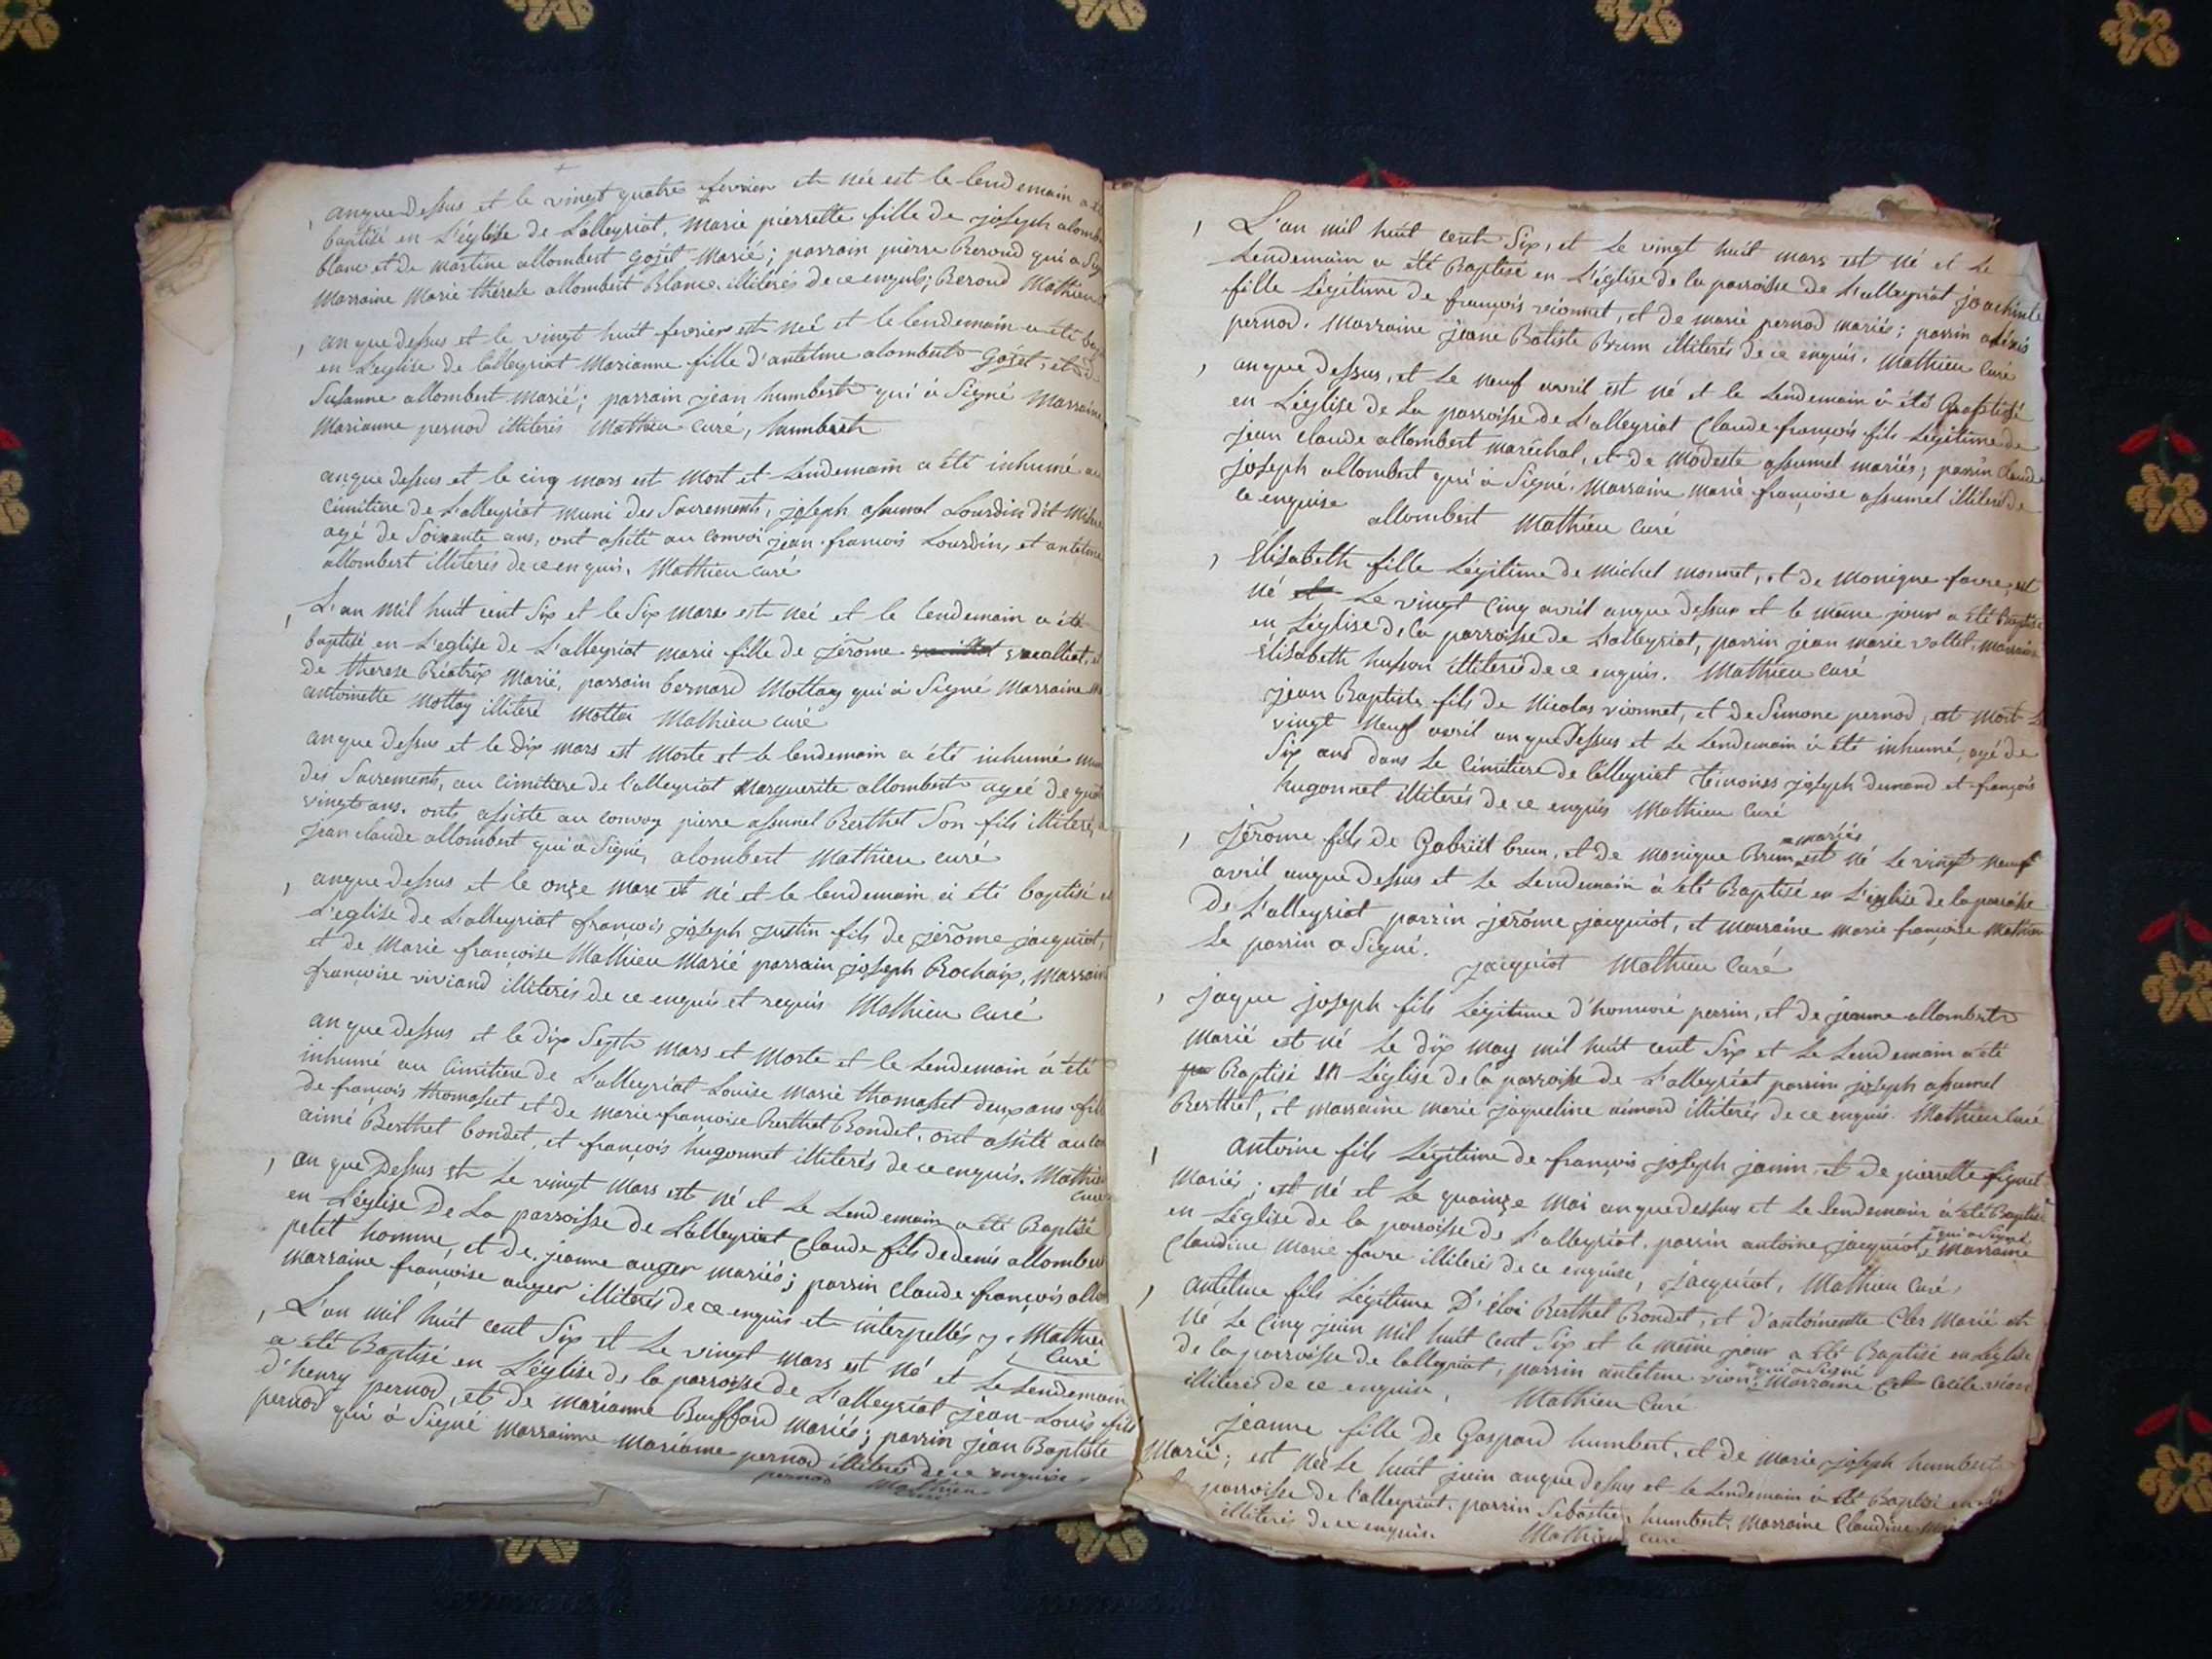 an que dessus et le vingt quatre fevrier est née est le lendemain a
baptisé en L'église de Lalleyriat, Marie pierrette fille de joseph alomb
blanc et de martine allombert gojet Marié; parrain pierre Beroud qui a
Marraine Marie thérese allombert Blanc. illiterés de ce enquis; Beroud Mathieu
an que dessus et le vingt huit fevrier est neé et le lendemain a été
en L'eglise de lalleyriat Marianne fille d'antelme alombert Gojet, et
Susanne allombert Marié; parrain jean humbert qui à Signé Marraine
Marianne pernod illiterés Mathieu curé, humbert
an que dessus et le cinq mars est Mort et Lendemain a été inhumé au
cimitiere de L'alleyriat muni des Sacrements, joseph assumel Lourdin dit
agé de Soixante ans, ont asité au convoi jean-francois Lourdin, et antelme
allombert illiterés de ce enquis. Mathieu curé
L'an mil huit cent Six et le Six mars est neé et le lendemain a été
baptisé en L'eglise de L'alleyriat marie fille de jérome
de therese Béatrix Marié, parrain bernard Mottay qui à Signé Marraine
antoinette Mottay illiteré Mottai Mathieu curé
an que dessus et le dix mars est Morte et le lendemain a été inhumé
des Sacrements, au cimitiere de l'alleyriat Marguerite allombert ageé de
vingt ans. ont assiste au convoy pierre assumel Berthet Son fils illiteré,
jean claude allombert qui a Signé, alombert Mathieu curé
an que dessus et le onze mars est né et le lendemain a été baptisé
L'eglise de L'alleyriat francois joseph justin fils de jérome jacquiot,
et de Marie françoise Mathieu Marié parrain joseph Rochaix, Marraine
françoise viviand illiterés de ce enquis et requis Mathieu Curé
an que dessus et le dix Sept mars et Morte et le Lendemain à été
inhumé au Cimitiere de L'alleyriat Louise Marie thomasset deux ans
de françois thomasset et de marie françoise Berthet Bondet. ont asité au
aimé Berthet bondet, et françois hugonnet illiterés de ce enquis. Mathieu
Curé
an que Dessus et Le vingt Mars est né et le Lendemain a été Baptisé
en L'église De La parroisse de L'alleyriat Claude fils de denis
petit homme, et de jeanne auger mariés; parrin Claude françois
marraine françoise auger illiterés de ce enquis et interpellés Mathieu
Curé
L'an mil huit cent Six et Le vingt Mars est né et Le Lendemain
a été Baptisé en L'église de la parroisse de L'alleyriat jean-Louis fils
d'henry pernod, et de marianne Buffard mariés; parrin jean Baptiste
pernod qui à Signé Marrainne Marianne pernod illiteré de ce enquise
pernod Mathieu
curé
L'an mil huit cent Six, et Le vingt huit mars est né et Le
Lendemain a été Baptisé en L'église de la parroisse de L'alleyriat
fille Légitime de françois vionnet, et de marie pernod mariés; parrin
pernod. Marraine jeane Batiste Brun illiterés de ce enquis. Mathieu Curé
an que dessus, et Le neuf avril est né et le Lendemain à été Baptisé
en L'église de La parroisse de L'alleyriat Claude françois fils Légitime de
jean Claude allombert maréchal, et de Modeste assumel mariés; parrin Claude
joseph allombert qui à Signé. Marraine Marie françoise assumel illiteré de
ce enquise allombert Mathieu Curé
Elisabeth fille Légitime de Michel monnet, et de Monique favre, est
né Le vingt Cinq avril an que dessus et le même jour a été Baptisé
en L'église de La parroisse de L'alleyriat, parrin jean Marie vallet. Marraine
Elisabeth husson illiterés de ce enquis. Mathieu Curé
jean Baptiste fils de Nicolas vionnet, et de Simone pernod, est mort Le
vingt Neuf avril an que Dessus et Le Lendemain à été inhumé, agé de
Six ans dans Le Cimitiere de l'alleyriat témoins joseph dumand et françois
hugonnet illiterés de ce enquis Mathieu Curé
jérome fils de Gabriel brun, et de monique Brun mariés est né Le vingt Neuf
avril an que dessus et Le Lendemain à été Baptisé en L'église de la parroisse
De L'alleyriat parrin jérôme jacquiot, et marraine marie françoise Mathieu
Le parrin a Signé.
Jacquiot Mathieu Curé
jaque joseph fils Légitime d'honnoré perrin, et de jeanne allombert
Marié est né Le dix may mil huit cent Six et Le Lendemain a été
Baptisé en L'église de la parroisse de L'alleyriat parrim joseph assumel
Berthet, et marraine marie jaqueline aimard illiterés de ce enquis. Mathieu Curé
antoine fils Légitime de françois joseph janin, et de pierrette
Mariés; est né et Le quainze mai an que dessus et Le lendemain à été Baptisé
en L'église de la parroisse de l'alleyriat. parrin antoine jacquiot, qui a Signé Marraine
Claudine Marie favre illiteré de ce enquise, jacquiot, Mathieu Curé.
antelme fils Légitime D'éloi Berthet Bondet, et d'antoinette Cler Marié est
né Le Cinq juin mil huit cent Six et le même jour a été Baptisé en L'église
de la parroisse de lalleyriat, parrin antelme qui a Signé Marraine Cecile
illiteré de ce enquise, Mathieu Curé
jeanne fille De Gaspard humbert, et de marie joseph humbert
Marié; est née Le huit juin an que dessus et Le Lendemain à été Baptisé en
parroisse de L'alleyriat. parrin Sébastien humbert. Marraine Claudine
illiterés de ce enquis. Mathieu Curé